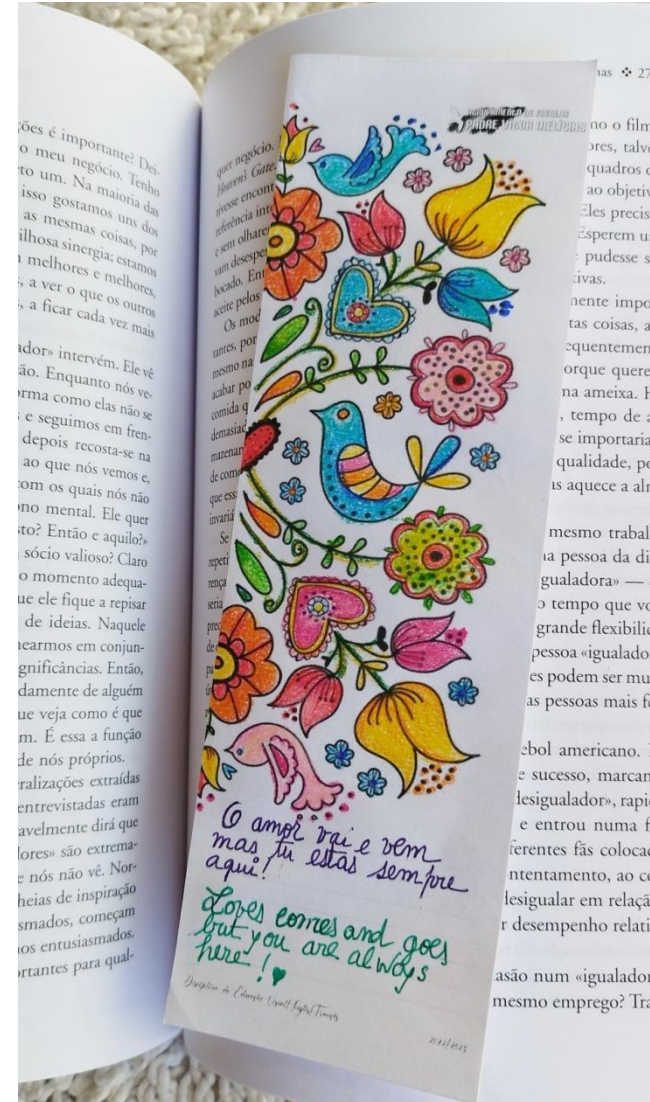 ões é importante? Dei-
o meu negócio. Tenho
to um. Na maioria das
isso gostamos uns dos
as mesmas coisas, por
ilhosa sinergia; estamos
melhores e melhores,
, a ver o que os outros
, a ficar cada vez mais
ador» intervém. Ele vê
ão. Enquanto nós ve-
orma como elas não se
e seguimos em fren-
depois recosta-se na
ao que nós vemos e,
com os quais nós não
ono mental. Ele quer
sto? Então e aquilo?»
sócio valioso? Claro
o momento adequa-
ue ele fique a repisar
de ideias. Naquele
nearmos em conjun-
gnificâncias. Então,
damente de alguém
ue veja como é que
m. É essa a função
de nós próprios.
ralizações extraídas
entrevistadas eram
avelmente dirá que
lores» são extrema-
e nós não vê. Nor-
heias de inspiração
smados, começam
os entusiasmados.
ortantes para qual-
quer negócio.
Heaven's Gate
tivesse encont
referência int
e sem olhare
vam desespe
bocado. Ent
aceite pelos
Os mod
tantes, por
mesmo na
acabar po
comida q
demasiad
mazenan
de com
que ess
invariá
Se
repeti
rença
seria
AGRUPAMENTO DE ESCOLAS
PADRE VÍTOR MELÍCIAS
O amor vai e vem
mas tu estás sempre
aqui!
Loves comes and goes
but you are always
here!
Disciplina de Educação Visual/Inglês/Francês
2022/2023
nas ❖ 27
no o film
ores, talv
quadros c
ao objetiv
Eles precis
Esperem u
pudesse s
tivas.
nente impo
tas coisas, a
equentemen
orque quere
na ameixa. H
, tempo de a
se importaria
qualidade, po
as aquece a alr
mesmo trabal
a pessoa da di
gualadora» —
o tempo que vo
grande flexibilic
pessoa «igualado
es podem ser mu
as pessoas mais fe
ebol americano.
e sucesso, marcan
desigualador», rapi
e entrou numa f
ferentes fãs coloca
ntentamento, ao co
desigualar em relaçã
r desempenho relati
asão num «igualador
mesmo emprego? Tra